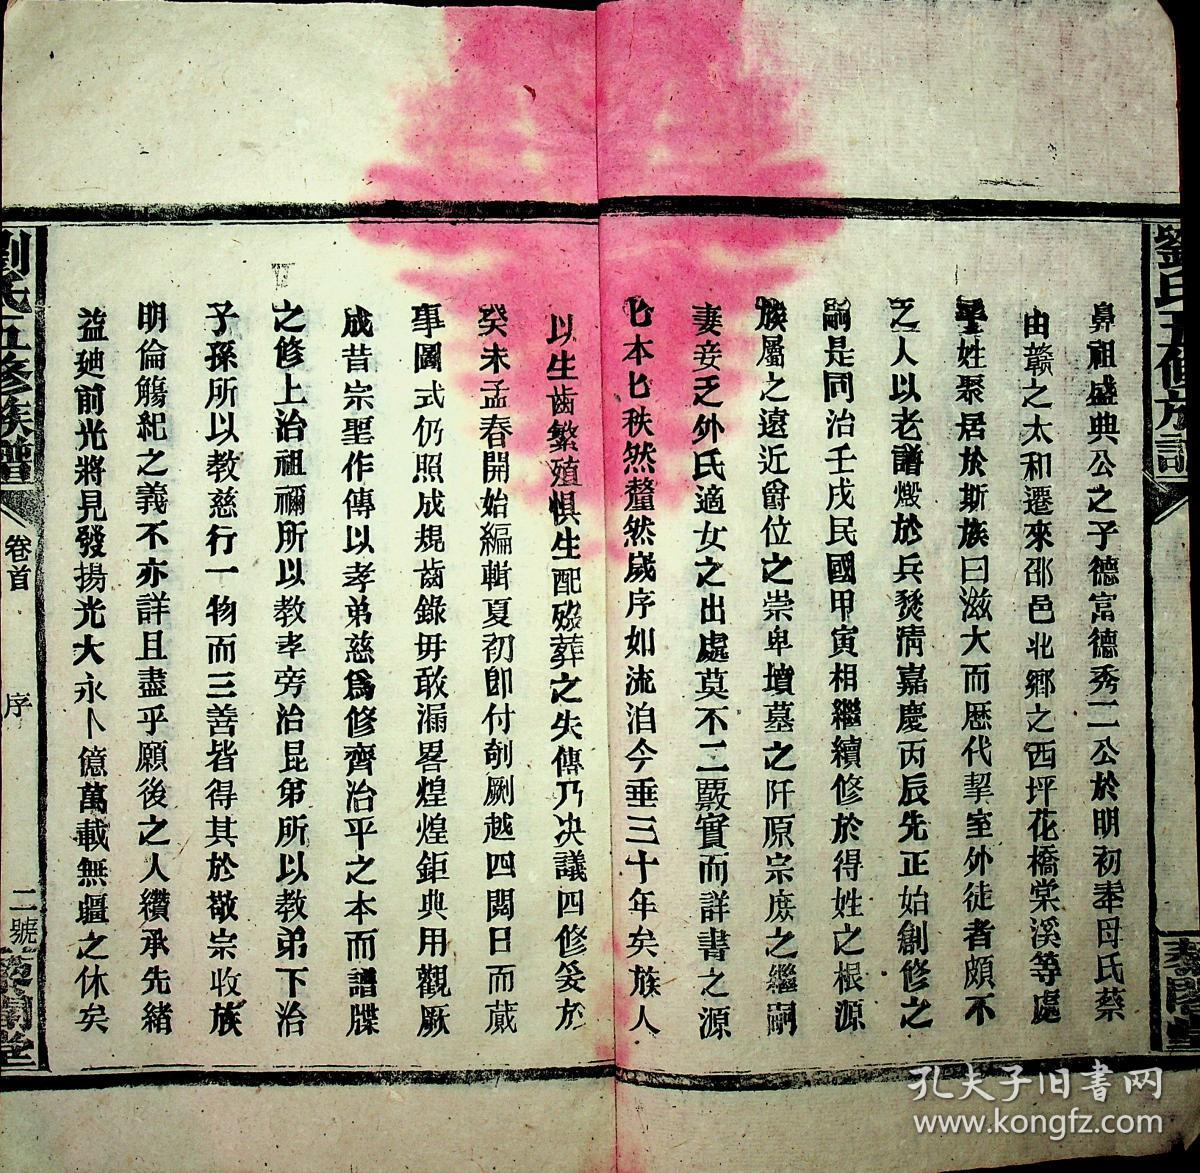 鼻祖盛典公之子德富德秀二公於明初奉母氏蔡
由贛之太和遷來邵邑北鄉之西坪花橋棠溪等處
姓聚居於斯族曰滋大而歷代挈室外徒者頗不
乏人以老譜燬於兵燹清嘉慶丙辰先正始創修之
嗣是同治壬戌民國甲寅相繼續修於得姓之根源
族屬之遠近爵位之崇卑墳墓之阡原宗庶之繼嗣
妻妾之外氏適女之出處莫不二覈實而詳書之源
匕本匕秩然釐然歲序如流洎今垂三十年矣族人
以生齒繁殖惧生配歿葬之失傳乃决議四修爰於
癸未孟春開始編輯夏初即付剞劂越四閱日而蕆
事圖式仍照成規齒錄毋敢漏畧煌煌鉅典用觀厥
成昔宗聖作傳以孝弟慈為修齊治平之本而譜牒
之修上治祖禰所以教孝旁治昆弟所以教弟下治
子孫所以教慈行一物而三善皆得其於敬宗收族
明倫觴紀之義不亦詳且盡乎願後之人纘承先緒
益廸前光將見發揚光大永卜億萬載無疆之休矣
劉氏五修族譜
卷首
序
二號
孔夫子旧书网
www.kongfz.com